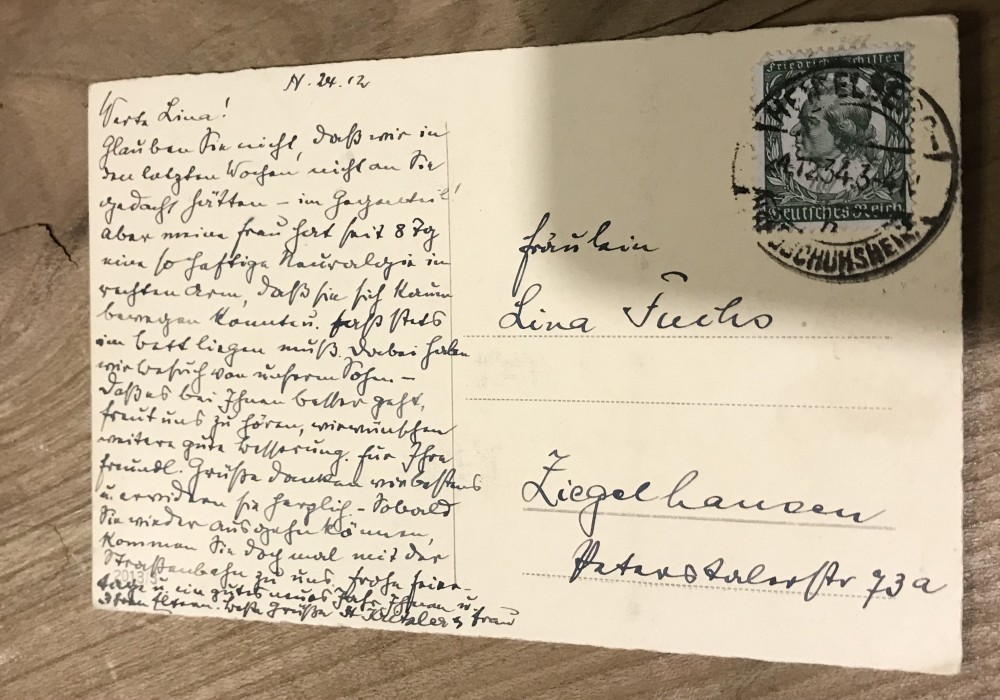 N. 24.12
Werte Lina!
Glauben Sie nicht, daß wir in
den letzten Wochen nicht an Sie
gedacht hätten – im Gegenteil!
Aber meine Frau hat seit 8 Tg
eine so heftige Neuralgie im
rechten Arm, daß sie sich kaum
bewegen konnte u. fast stets
im Bett liegen muß. Dabei haben
wir Besuch von unserm Sohn –
Daß es bei Ihnen besser geht,
freut uns zu hören, wir wünschen
weitere gute Besserung. Für Ihre
freundl. Grüße danken wir bestens
u. erwidern sie herzlich – Sobald
Sie wieder ausgehn können,
kommen Sie doch mal mit der
Straßenbahn zu uns. Frohe Feier-
tage u. ein gutes neues Jahr Ihnen u.
Ihren Eltern. Beste Grüße Frau
Friedrich Schiller
Deutsches Reich
HEIDELBERG
HANDSCHUHSHEIM
Fräulein
Lina Fuchs
Ziegelhausen
Peterstalerstr 73a